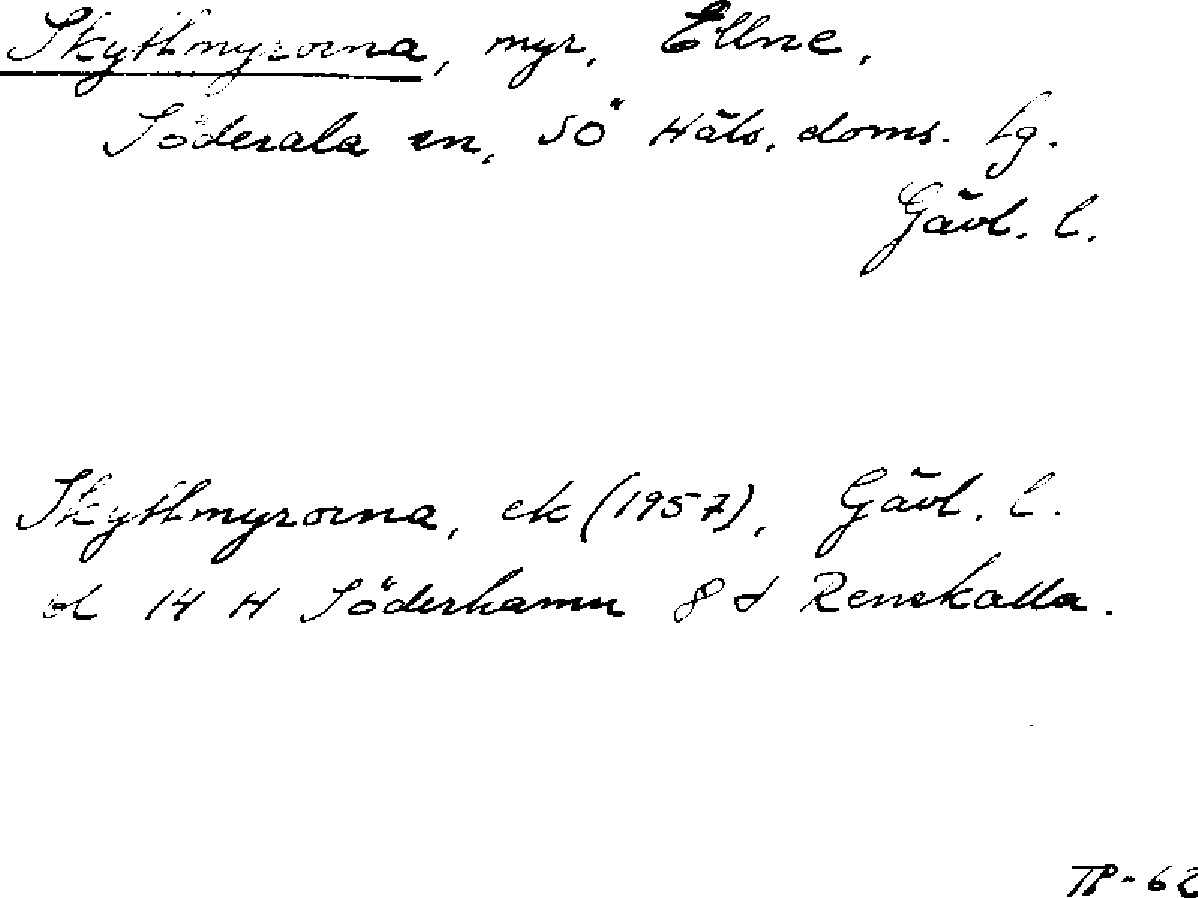 Skyttmyrorna, myr, Ellne,
Söderala sn, SÖ Häls. doms. lg.
Gävl. l.
Skyttmyrorna, ek (1957), Gävl. l.
bl 14 H Söderhamn 8 d Renskalla.
TP-62